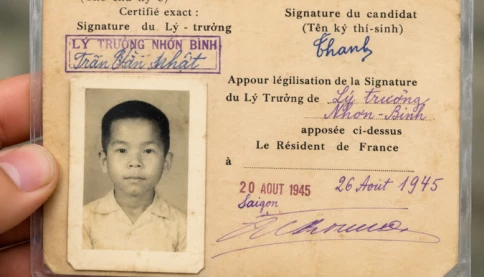 Certifié exact :
Signature du Lý - trưởng
LÝ TRƯỞNG NHƠN BÌNH
Trần Văn Nhật
Signature du candidat
(Tên ký thí-sinh)
Thanh
Appour légilisation de la Signature
du Lý Trưởng de Lý trưởng
Nhơn-Bình
apposée ci-dessus
Le Résident de France
à
20 AOUT 1945 26 Août 1945
Saigon